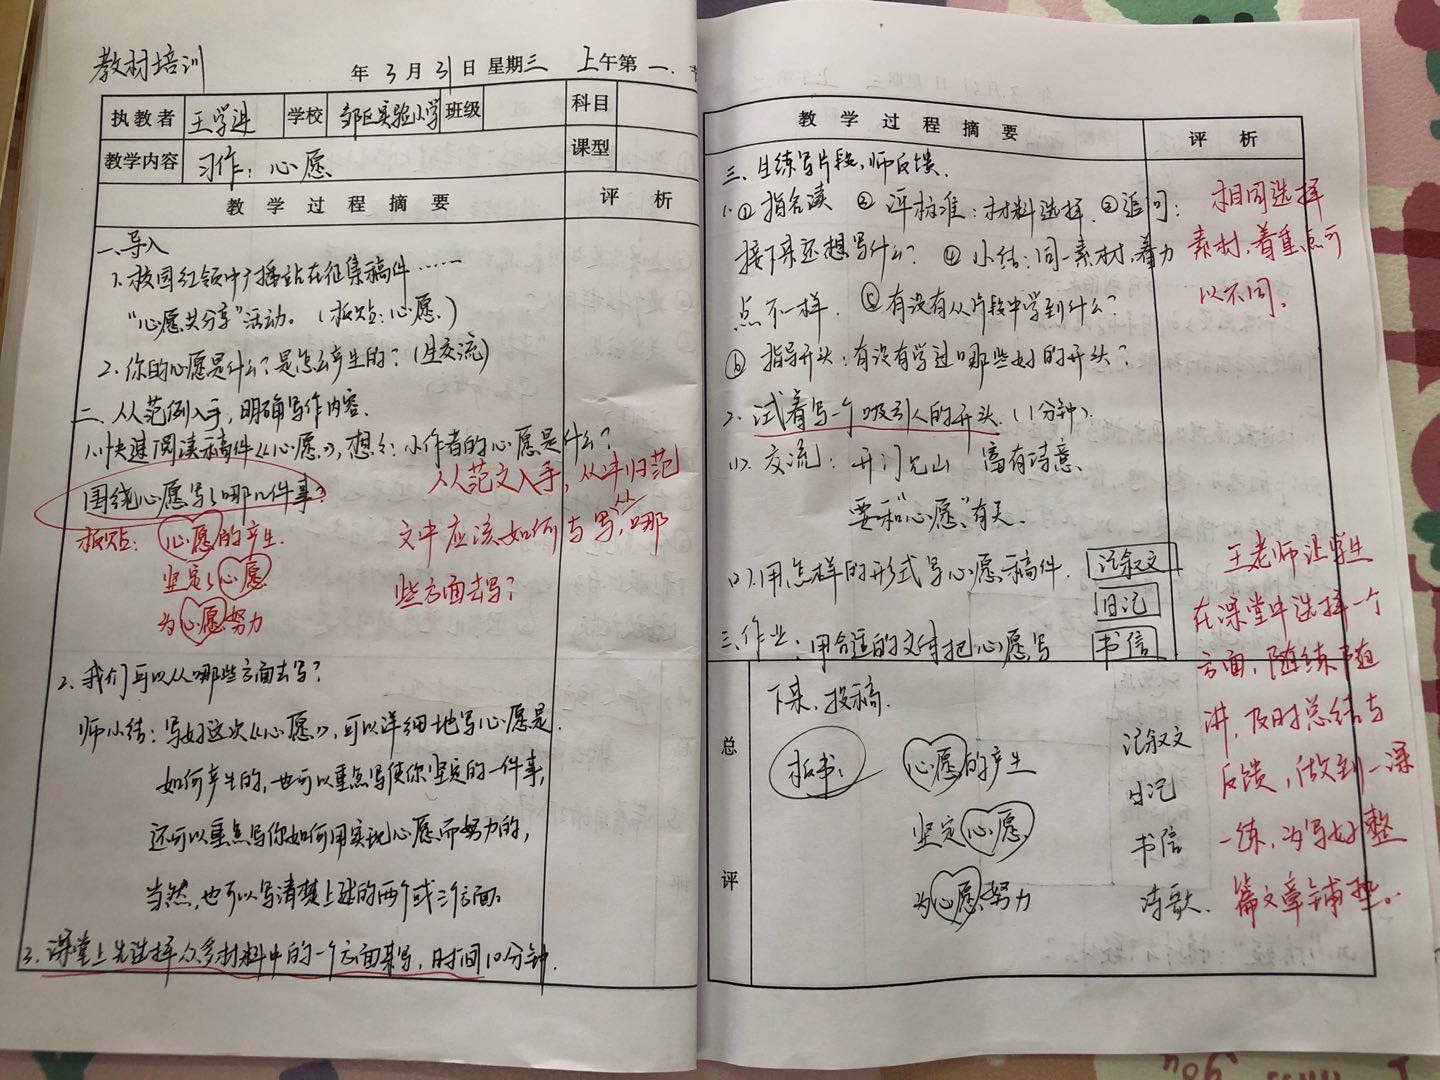 教材培训
年 3 月 31 日 星期三 上午第一.节
执教者 王学进 学校 邹区实验小学 班级 科目
教学内容 习作：心愿 课型
教学过程摘要 评析
一、导入
1.校园红领巾广播站在征集稿件……
“心愿共分享”活动。（板贴：心愿）
2.你的心愿是什么？是怎么产生的？（生交流）
二、从范例入手，明确写作内容.
1.快速阅读稿件《心愿》，想想：小作者的心愿是什么？
围绕心愿写了哪几件事？
板贴：心愿的产生.
坚定了心愿
为心愿努力
从范文入手，从中归范
文中应该如何去写，从哪
些方面去写？
2.我们可以从哪些方面去写？
师小结：写好这次《心愿》，可以详细地写心愿是
如何产生的，也可以重点写使你坚定的一件事，
还可以重点写你如何用实现心愿而努力的，
当然，也可以写清楚上述的两个或三个方面。
3.课堂上先选择众多材料中的一个方面来写，时间10分钟.
教学过程摘要 评析
三、生练写片段，师反馈.
1.①指名读 ②评标准：材料选择.③追问：
接下来还想写什么？④小结：同一素材，着力
点不一样. ⑤有没有从片段中学到什么？
⑥指导开头：有没有学过哪些好的开头？
相同选择
素材，着重点可
以不同。
2.试着写一个吸引人的开头.（1分钟）.
(1).交流：开门见山 富有诗意
要和“心愿”有关.
(2).用怎样的形式写心愿稿件. 记叙文
日记
书信
三、作业：用合适的文体把心愿写
下来，投稿.
王老师让学生
在课堂中选择一个
方面，随练随
讲，及时总结与
反馈，做到一课
一练，为写好整
篇文章铺垫。
总评
板书：
心愿的产生
坚定心愿
为心愿努力
记叙文
日记
书信
诗歌.